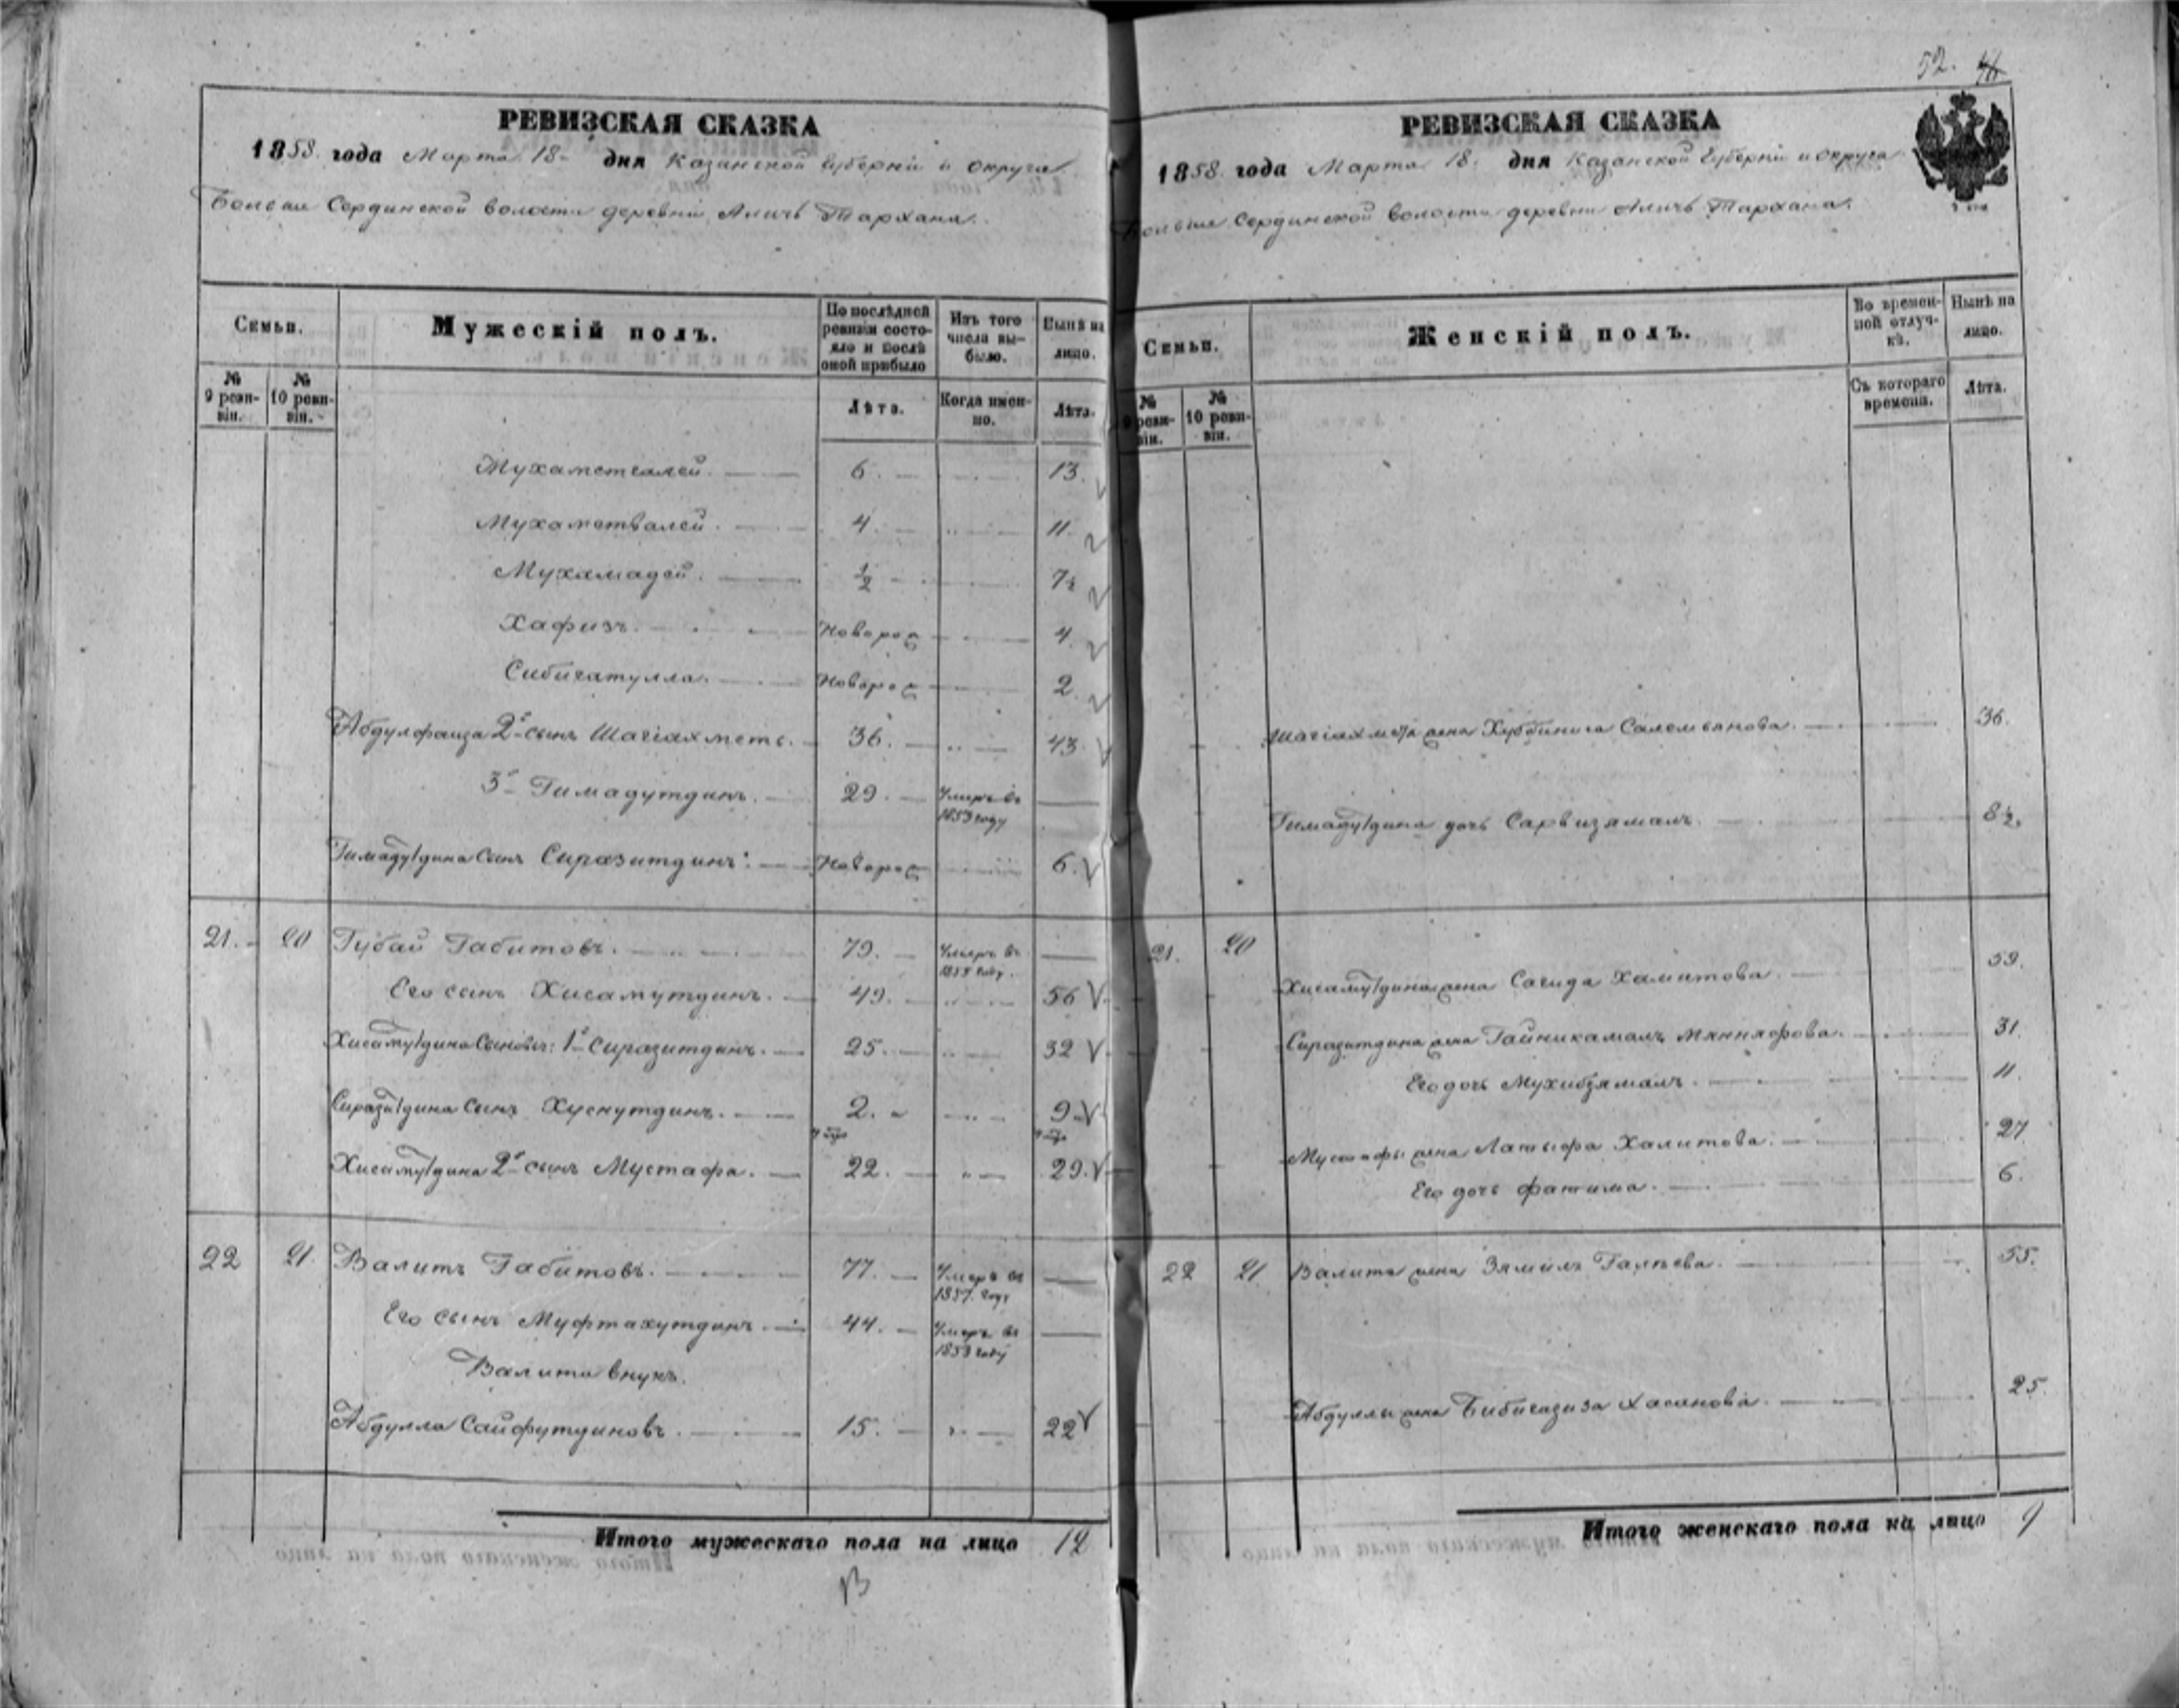 52.
РЕВИЗСКАЯ СКАЗКА
1858. года Марта 18. дня Казанской Губерніи и округа
Больше Сердинской волости деревни Аличъ Тархана.
Семьи.
Мужескій полъ.
По послѣдней ревизіи состояло и послѣ оной прибыло
Изъ того числа выбыло.
Нынѣ на лицо.
№ 9 ревизіи.
№ 10 ревизіи.
Лѣта.
Когда именно.
Лѣта.
Мухаметгалей. 6. 13.
Мухаметвалей. 4. 11.
Мухамадей. ½ 7½
Хафизъ. Новорож 4.
Сибигатулла. Новорож 2.
Абдулфаиза 2й сынъ Шагіахметъ. 36. 43.
3й Гимадутдинъ. 29. Умеръ въ 1853 году
Гимадутдина сынъ Сиразитдинъ. Новорож 6.
21. 20 Губай Габитовъ. 79. Умеръ въ 1855 году.
Его сынъ Хисамутдинъ. 49. 56
Хисамутдина сыновья: 1й Сиразитдинъ. 25. 32
Сиразитдина сынъ Хуснутдинъ. 2. 9.
Хисамутдина 2й сынъ Мустафа. 22. 29.
22 21. Валитъ Габитовъ. 77. Умеръ въ 1857. году
Его сынъ Муфтахутдинъ. 44. Умеръ въ 1853 году
Валита внукъ.
Абдулла Сайфутдиновъ. 15. 22
Итого мужескаго пола на лицо 12
РЕВИЗСКАЯ СКАЗКА
1858. года Марта 18. дня Казанской Губерніи и округа
Больше Сердинской волости деревни Аличъ Тархана.
Семьи.
Женскій полъ.
Во временной отлучкѣ.
Нынѣ на лицо.
№ 9 ревизіи.
№ 10 ревизіи.
Съ котораго времени.
Лѣта.
Шагіахмета жена Хуббиниса Салемьянова. 36.
Гимадутдина дочь Сарвизямалъ. 8½.
21. 20
Хисамутдина жена Сагида Хамитова. 59.
Сиразитдина жена Гайникамалъ Мянняфова. 31.
Его дочь Мухибзямалъ. 11.
Мустафы жена Латыфа Халитова. 27
Его дочь Фатима. 6.
22 21 Валита жена Зямилъ Галѣева. 55.
Абдуллы жена Бибигазиза Хасанова. 25.
Итого женскаго пола на лицо 9